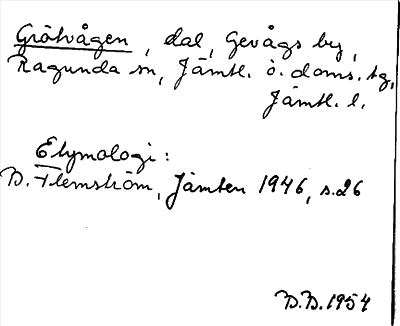 Grötvågen, dal, Gevågs by,
Ragunda sn, Jämtl. ö. doms. tg,
Jämtl. l.
Etymologi:
B. Flemström, Jämten 1946, s.26
B.B. 1954